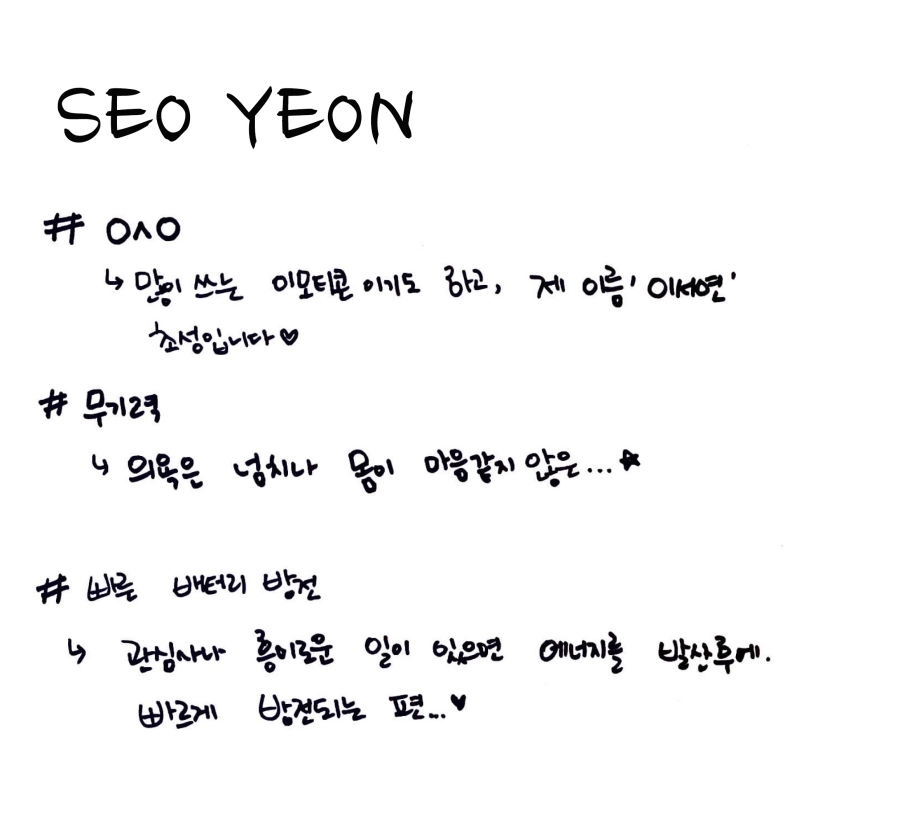 SEO YEON
# ㅇㅅㅇ
↳ 많이 쓰는 이모티콘 이기도 하고, 제 이름 '이서연'
초성입니다♡
# 무기력
↳ 의욕은 넘치나 몸이 마음같지 않은...★
# 빠른 배터리 방전
↳ 관심사나 흥미로운 일이 있으면 에너지를 발산후에.
빠르게 방전되는 편...♥